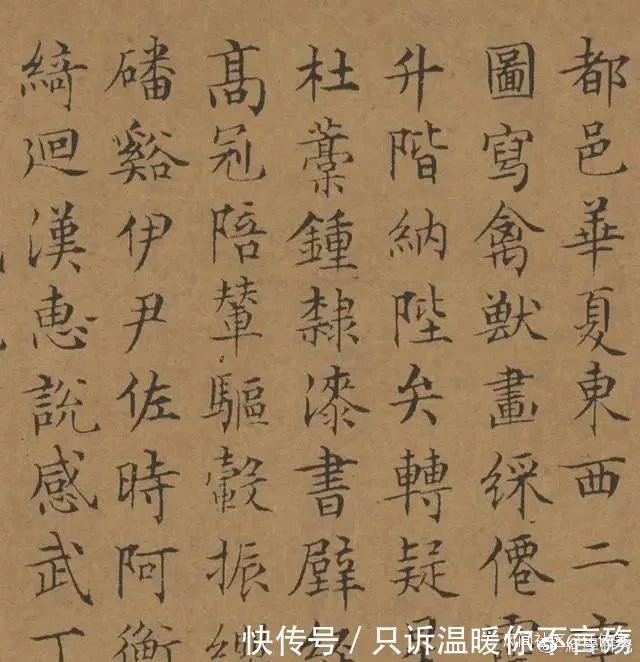 都邑華夏東西二京
圖寫禽獸畫綵僊靈
升階納陛矣轉疑星
杜藁鍾隸漆書壁經
高冠陪輦驅轂振纓
磻谿伊尹佐時阿衡
綺迴漢惠說感武丁
快传号/只诉温暖你不言殇